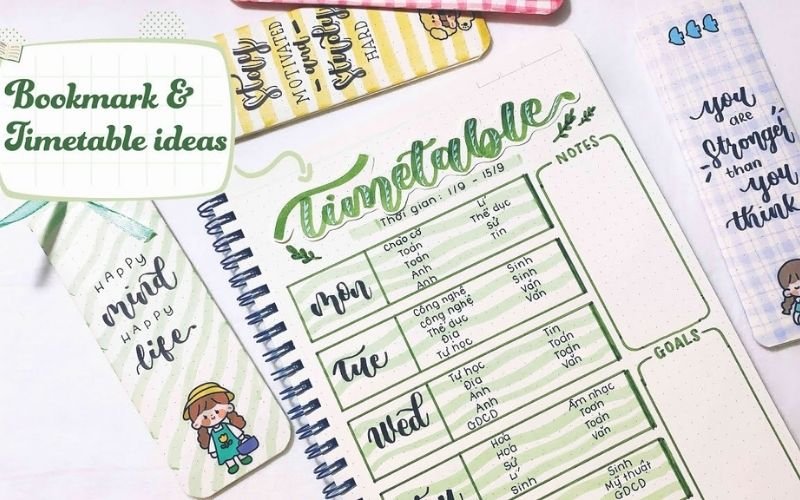 Bookmark &
Timetable ideas
Stay
MOTIVATED
and
Study
HARD
you
are
Stronger
than
you
think
HAPPY
mind
HAPPY
life.
Timetable
Thời gian: 1/9 - 15/9
NOTES
GOALS
mon
Chào cờ
Toán
Toán
Anh
Lí
Thể dục
Sử
Tin
Tue
Công nghệ
Công nghệ
Thể dục
Địa
Tự học
Sinh
Sinh
Văn
Văn
Wed
Tự học
Địa
Anh
Anh
GDCD
Tin
Toán
Toán
Văn
Hóa
Hóa
Sử
Lí
Âm nhạc
Toán
Toán
Văn
Sinh
Mỹ thuật
GDCD